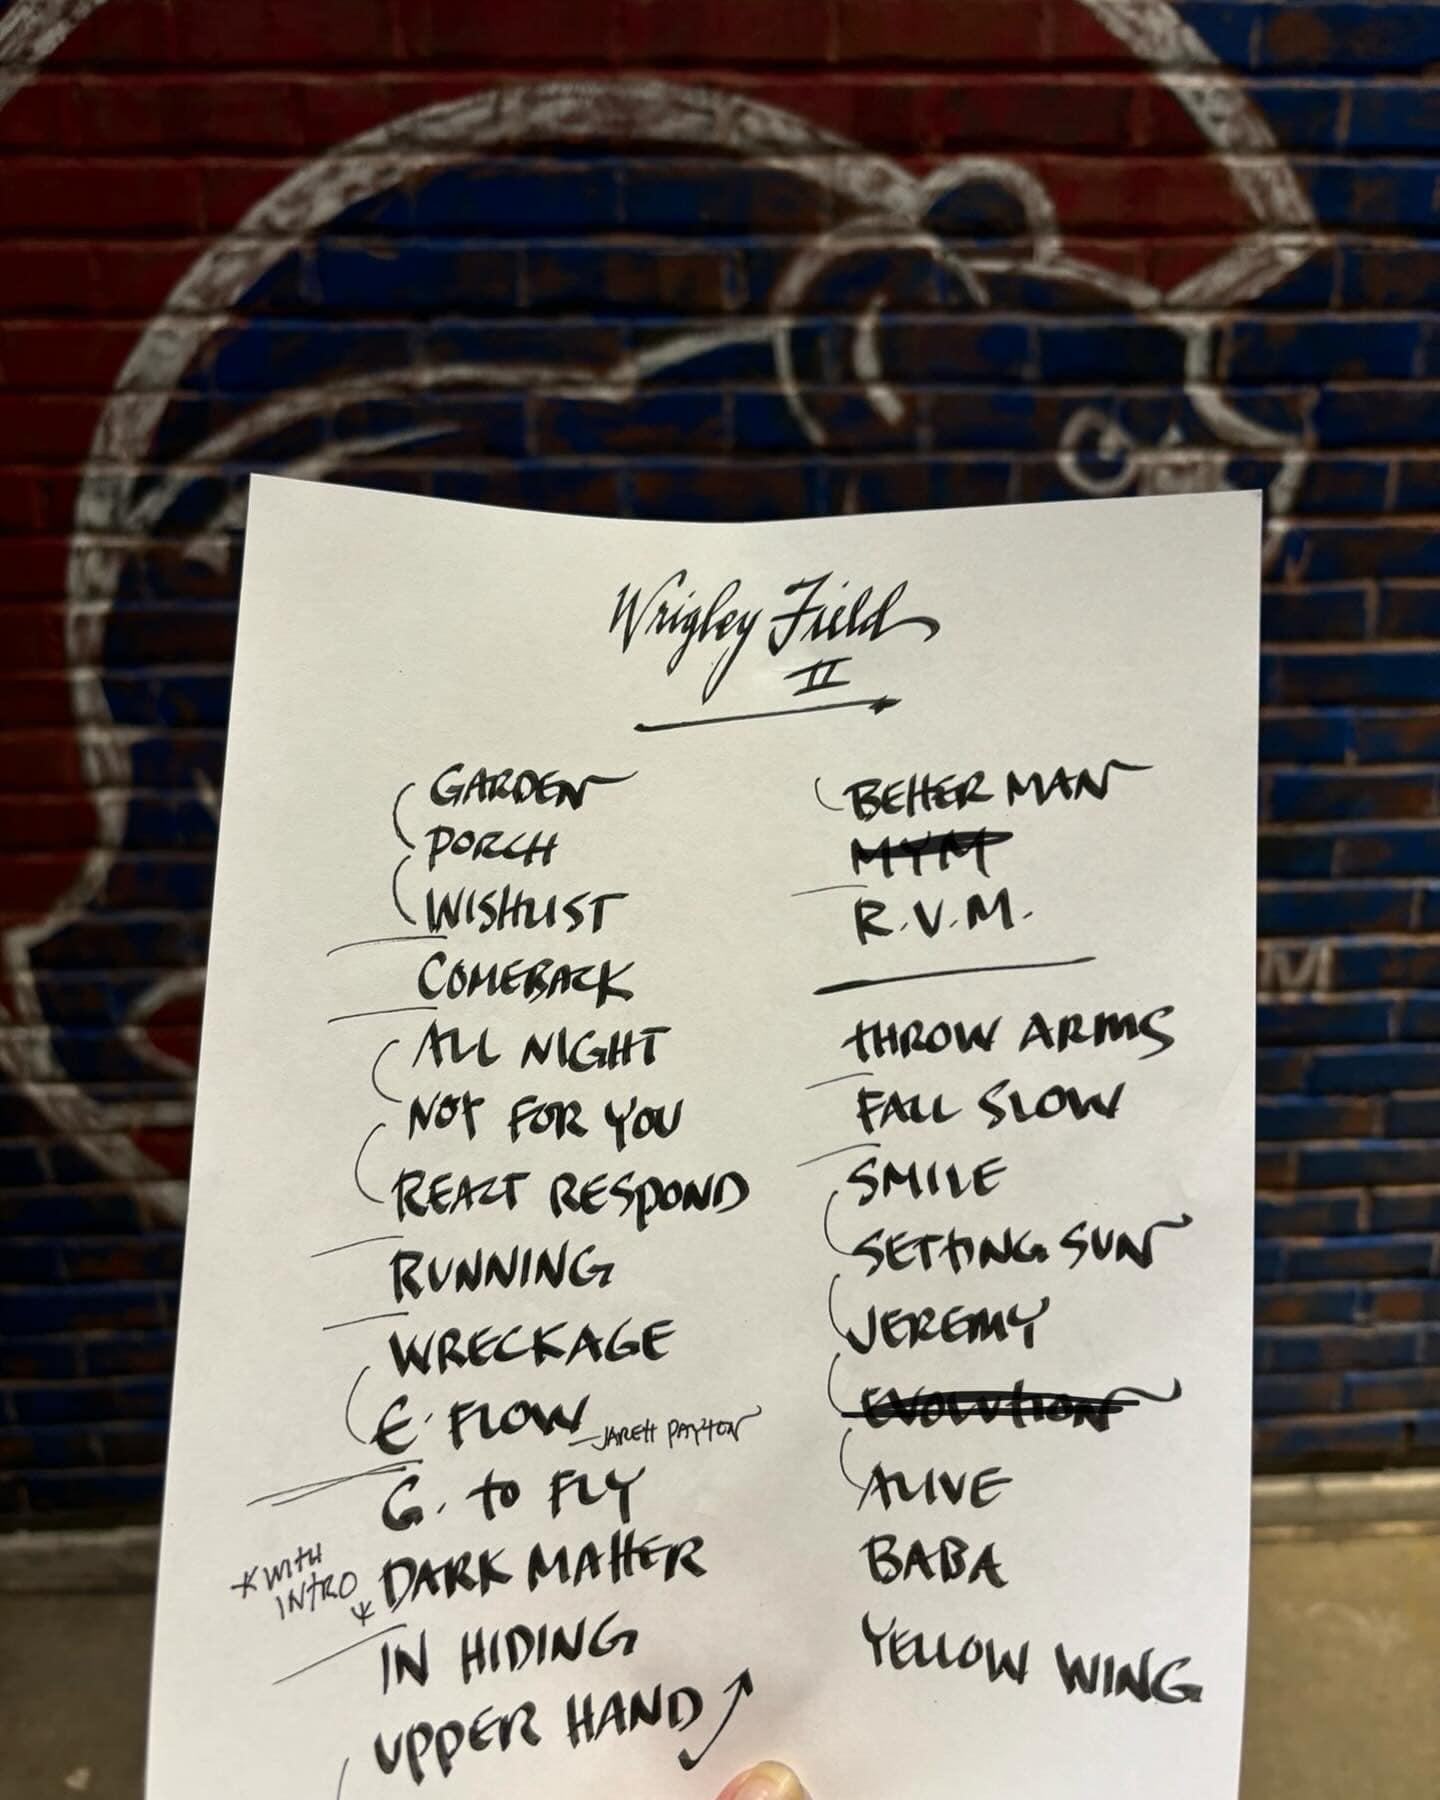 Wrigley Field
II
GARDEN
PORCH
WISHLIST
COMEBACK
ALL NIGHT
NOT FOR YOU
REACT RESPOND
RUNNING
WRECKAGE
E. FLOW - JARETT PAYTON
G. to FLY
*WITH INTRO* DARK MATTER
IN HIDING
UPPER HAND
BETTER MAN
MYM
R.V.M.
THROW ARMS
FALL SLOW
SMILE
SETTING SUN
JEREMY
EVOLUTION
ALIVE
BABA
YELLOW WING
M